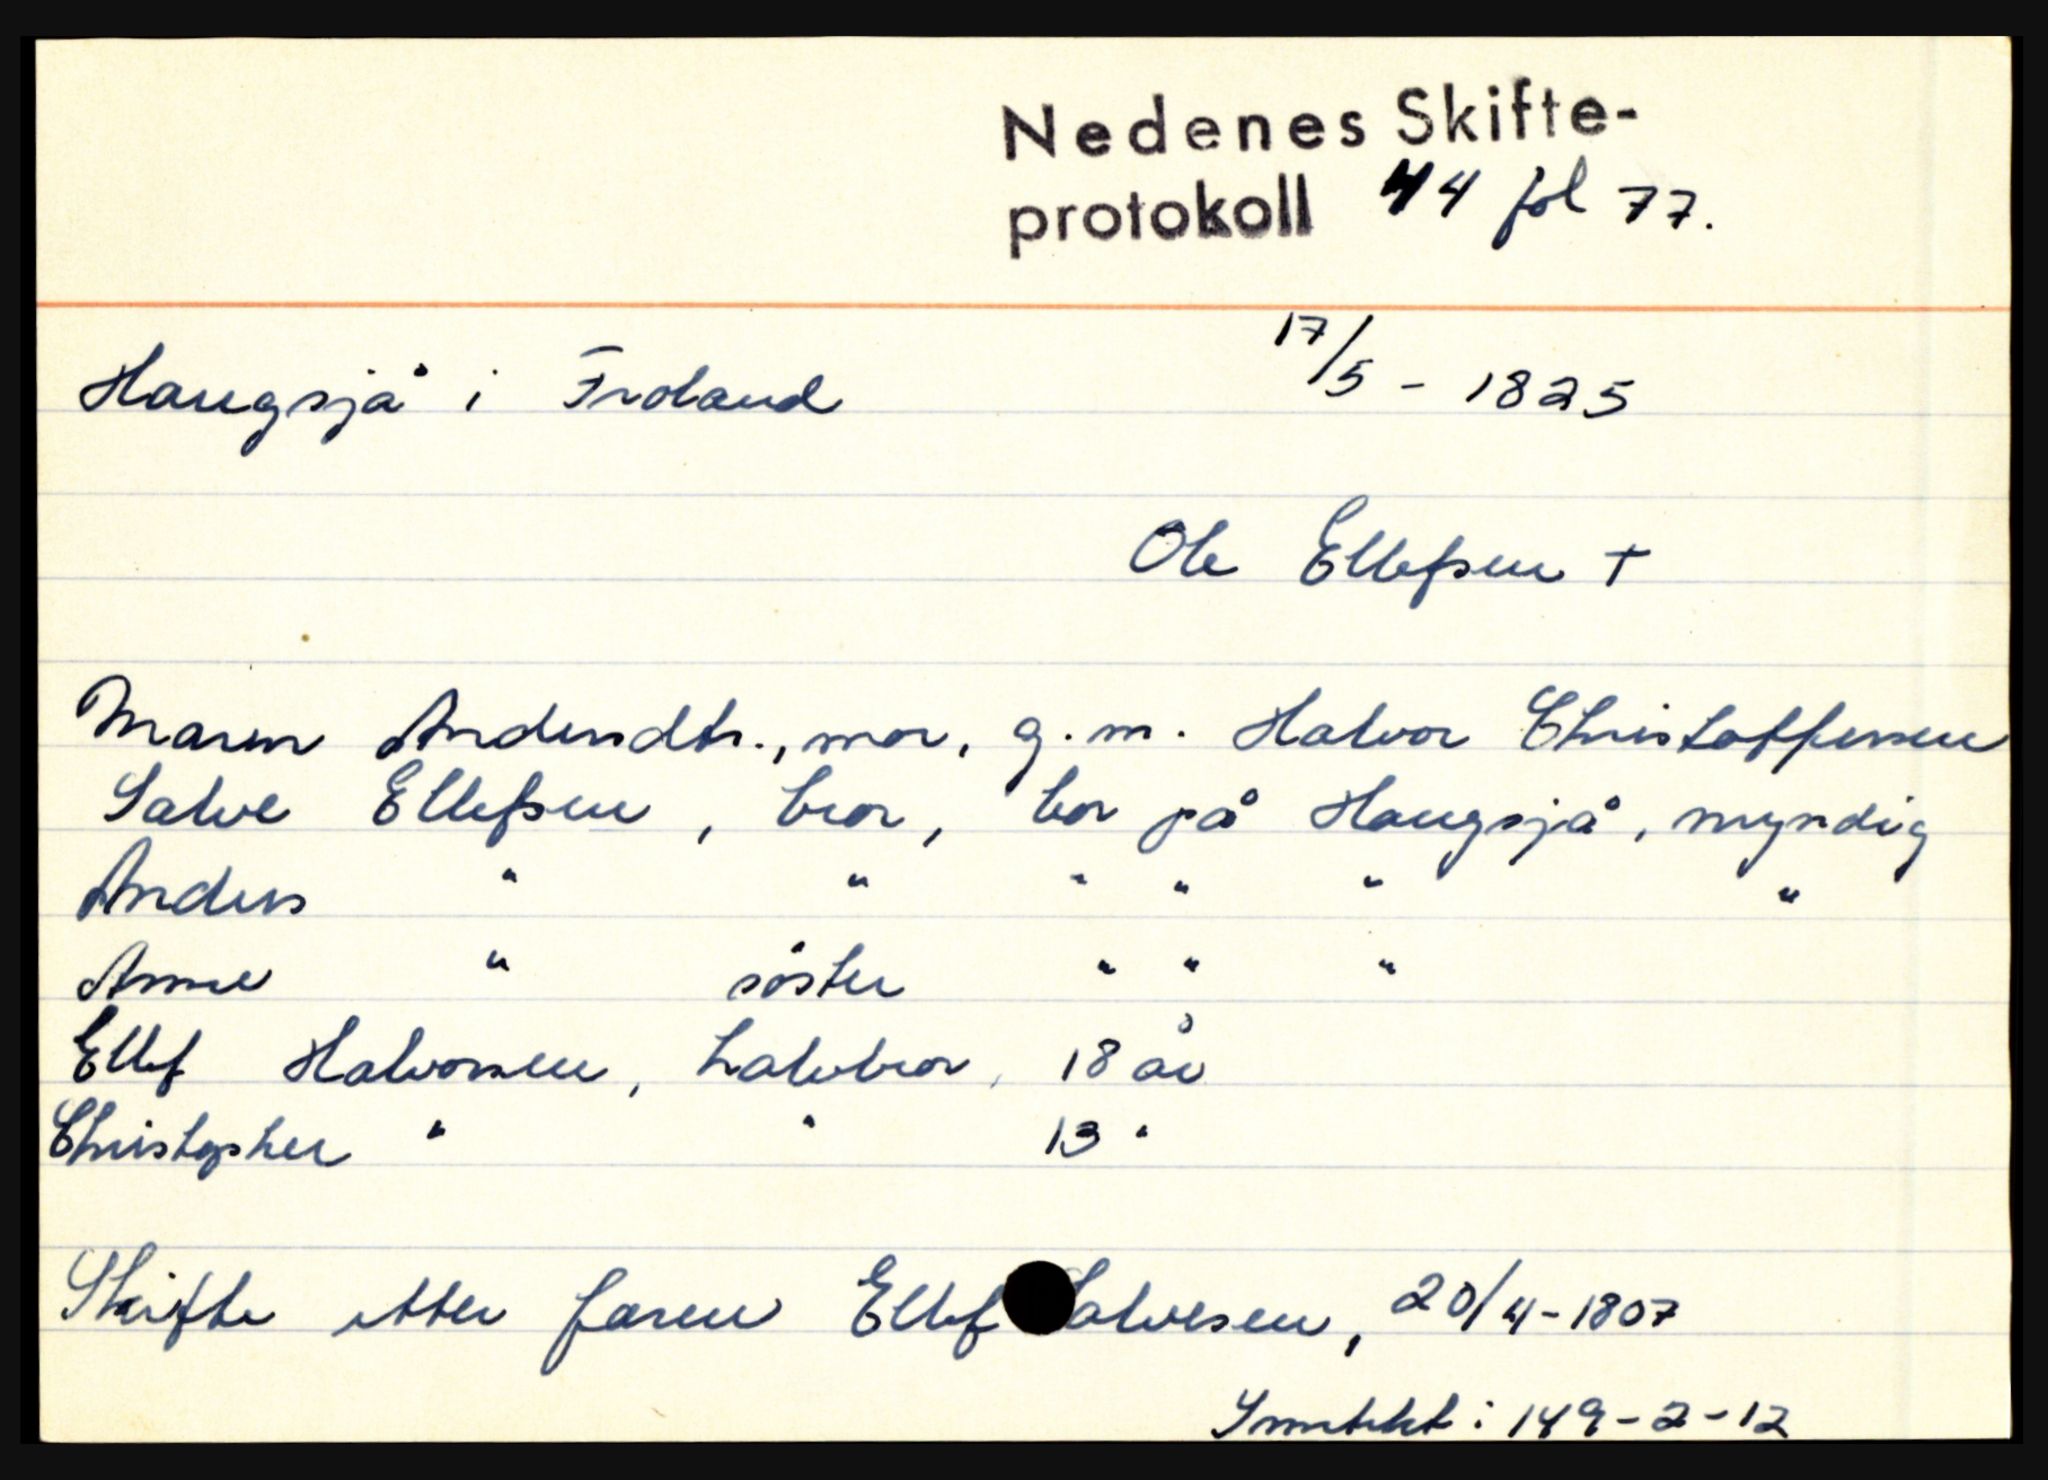 Nedenes Skifte-
protokoll 44 fol 77.
Haugsjå i Froland 17/5 - 1825
Ole Ellefsen †
Maren Andersdtr., mor, g.m. Halvor Christoffersen
Salve Ellefsen, bror, bor på Haugsjå, myndig
Anders " " " " " "
Anne " søster " " "
Ellef Halvorsen, halvbror, 18 år
Christopher " " 13 "
Skifte etter faren Ellef Salvesen, 20/4-1807
Inntekt: 149-2-12